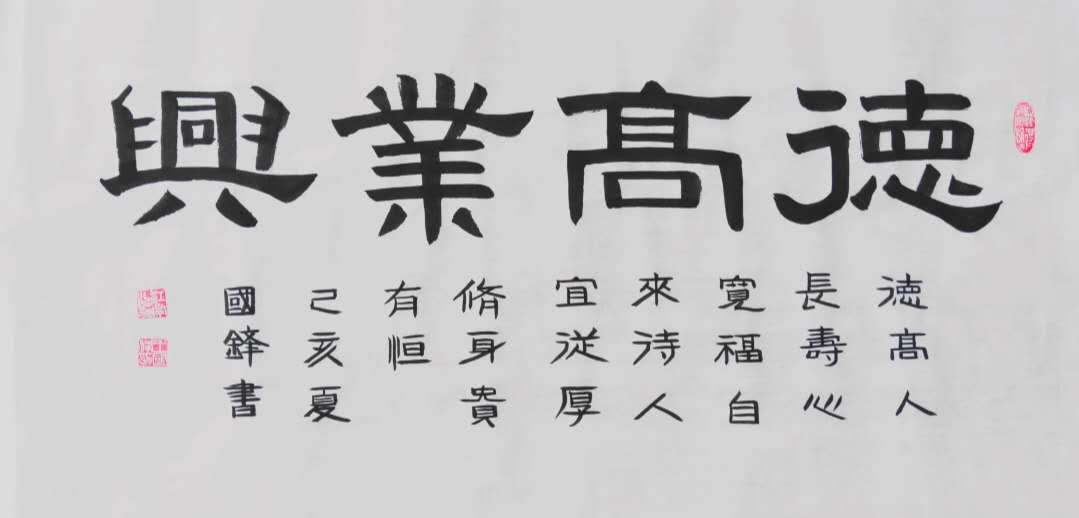 德髙業興
德髙人
長壽心
寬福自
來待人
宜従厚
脩身貴
有恒
己亥夏
國鋒書